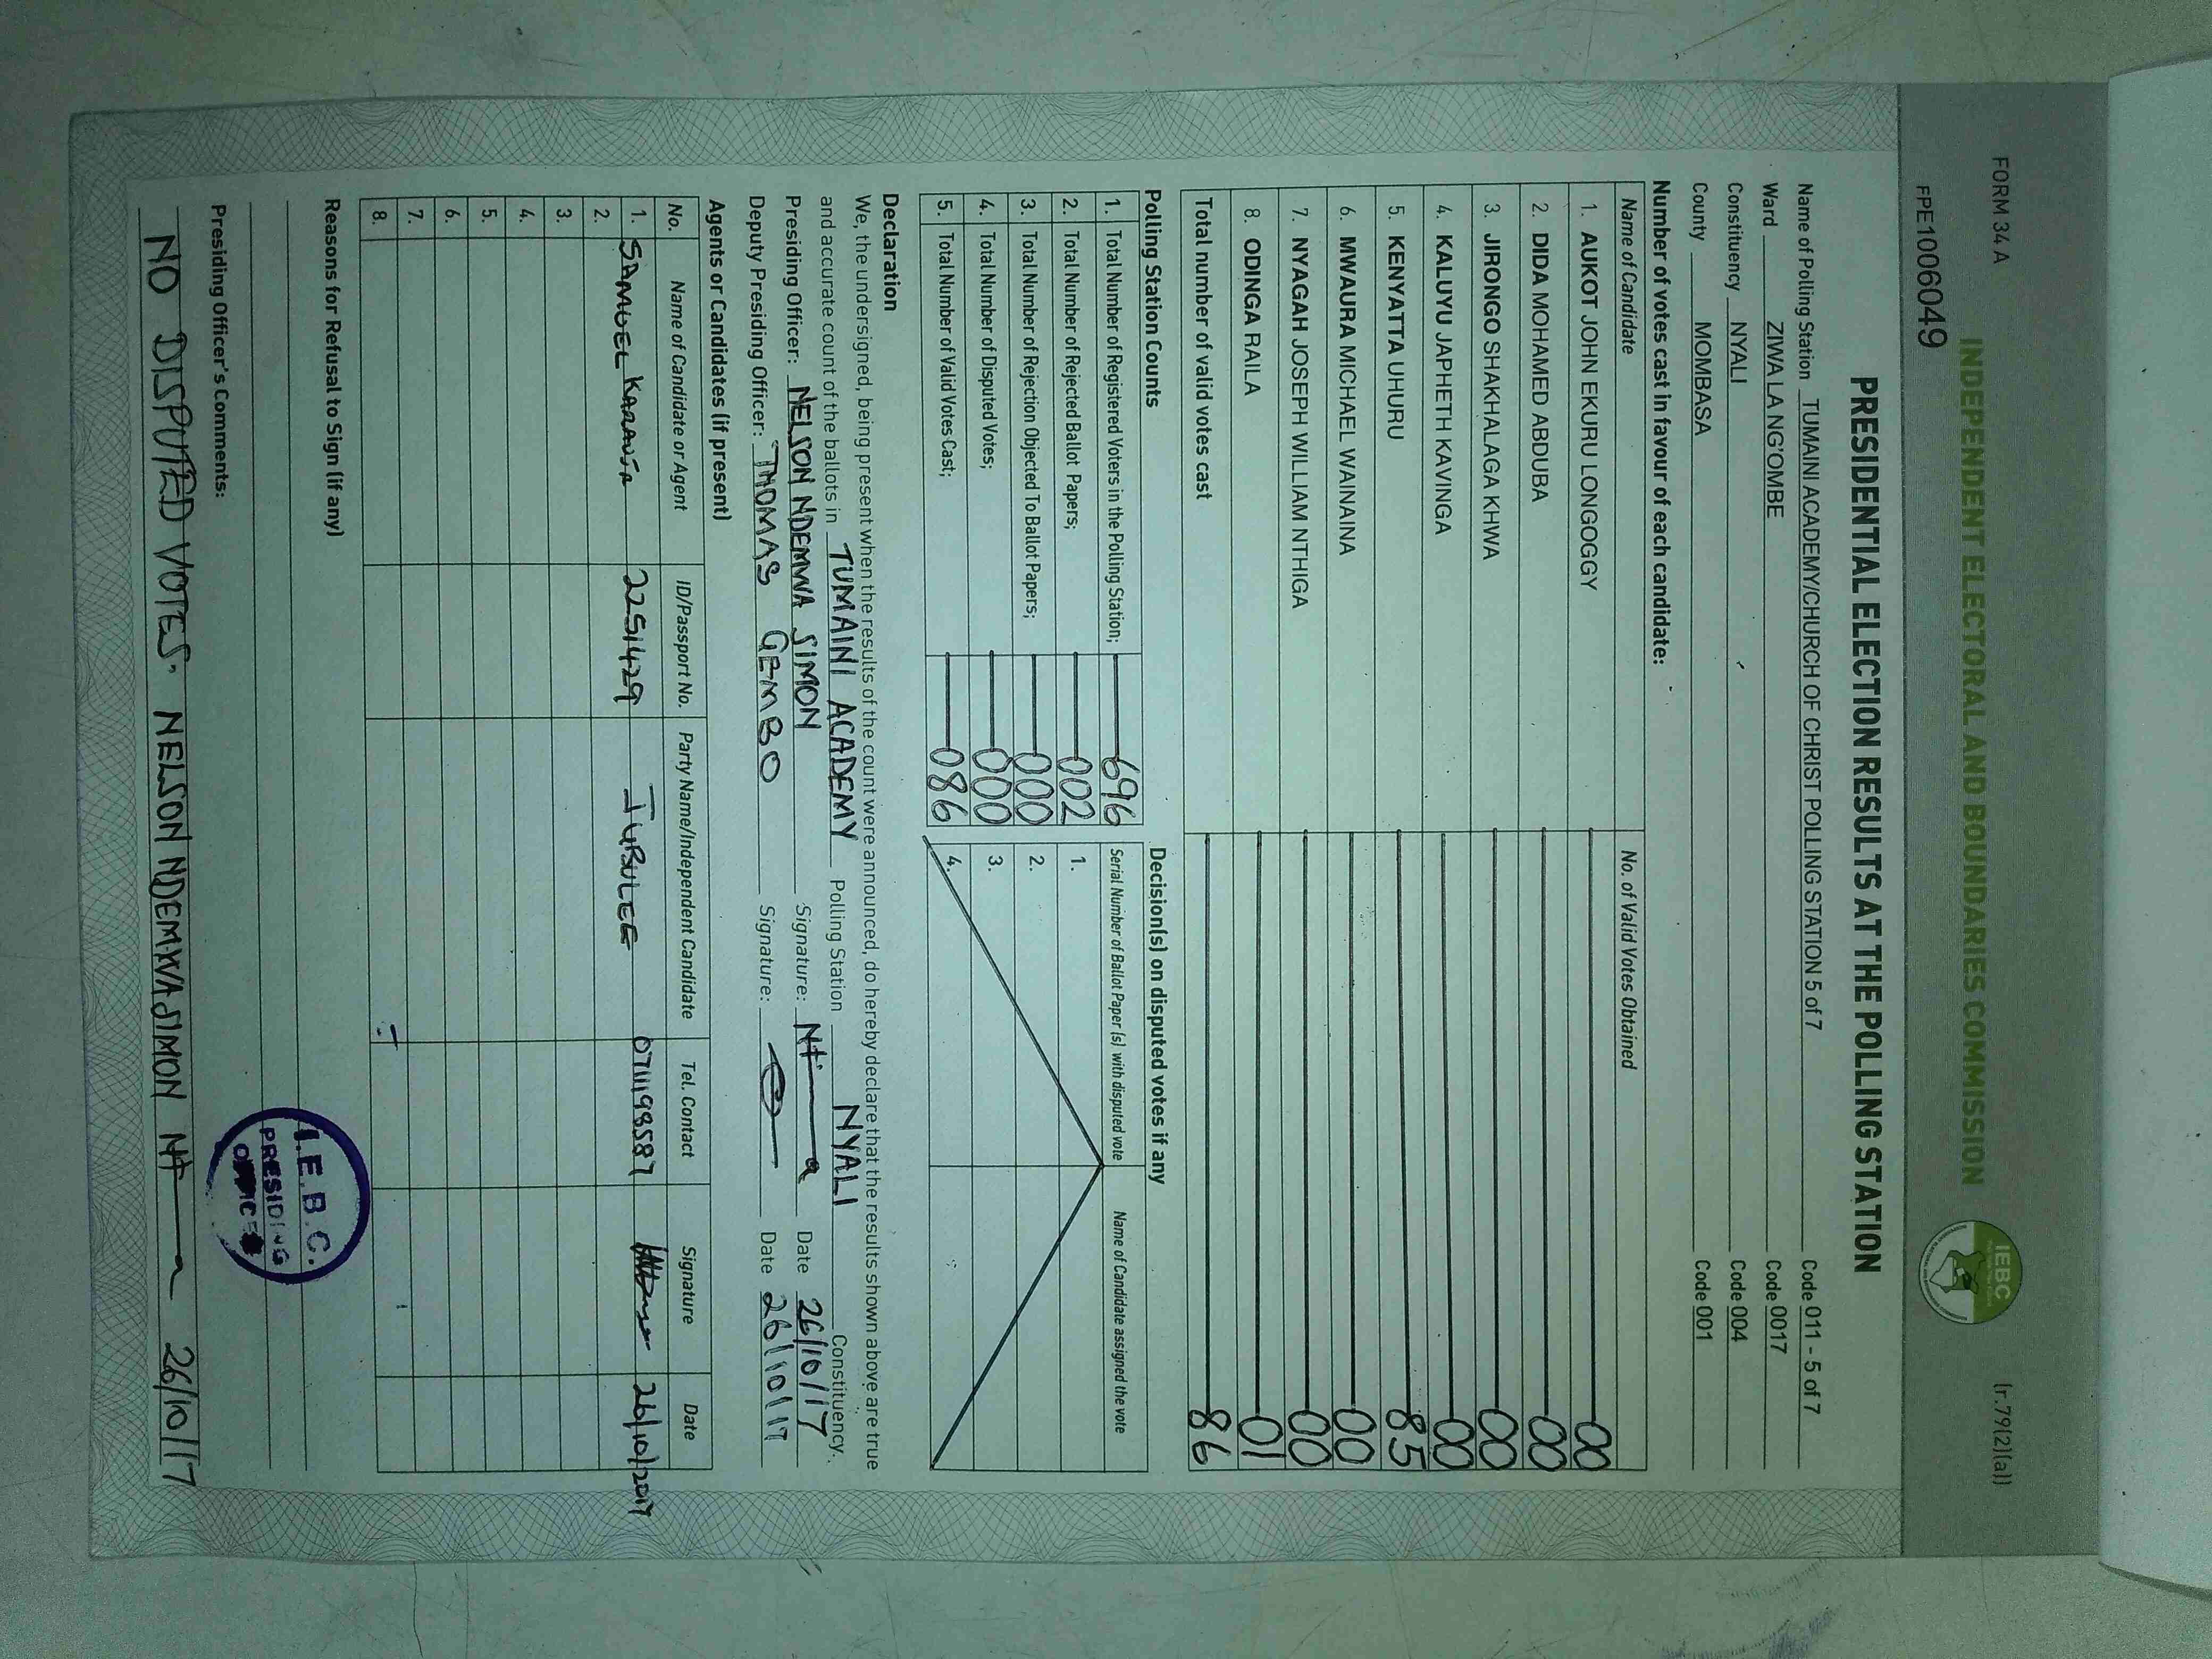 FORM 34 A
(r.79(2)(a))
INDEPENDENT ELECTORAL AND BOUNDARIES COMMISSION
IEBC
FPE1006049
PRESIDENTIAL ELECTION RESULTS AT THE POLLING STATION
Name of Polling Station TUMAINI ACADEMY/CHURCH OF CHRIST POLLING STATION 5 of 7 Code 011 - 5 of 7
Ward ZIWA LA NG'OMBE Code 0017
Constituency NYALI Code 004
County MOMBASA Code 001
Number of votes cast in favour of each candidate:
Name of Candidate No. of Valid Votes Obtained
1. AUKOT JOHN EKURU LONGOGGY 00
2. DIDA MOHAMED ABDUBA 00
3. JIRONGO SHAKHALAGA KHWA 00
4. KALUYU JAPHETH KAVINGA 00
5. KENYATTA UHURU 85
6. MWAURA MICHAEL WAINAINA 00
7. NYAGAH JOSEPH WILLIAM NTHIGA 00
8. ODINGA RAILA 01
Total number of valid votes cast 86
Polling Station Counts
1. Total Number of Registered Voters in the Polling Station; 696
2. Total Number of Rejected Ballot Papers; 002
3. Total Number of Rejection Objected To Ballot Papers; 000
4. Total Number of Disputed Votes; 000
5. Total Number of Valid Votes Cast; 086
Decision(s) on disputed votes if any
Serial Number of Ballot Paper (s) with disputed vote Name of Candidate assigned the vote
1.
2.
3.
4.
Declaration
We, the undersigned, being present when the results of the count were announced, do hereby declare that the results shown above are true
and accurate count of the ballots in TUMAINI ACADEMY Polling Station NYALI Constituency.
Presiding Officer: NELSON NDEMWA SIMON Signature: Date 26/10/17
Deputy Presiding Officer: THOMAS GEMBO Signature: Date 26/10/17
Agents or Candidates (if present)
No. Name of Candidate or Agent ID/Passport No. Party Name/Independent Candidate Tel. Contact Signature Date
1. SAMUEL KARANJA 2251429 JUBULEE 0711198587 26/10/2017
2.
3.
4.
5.
6.
7.
8.
Reasons for Refusal to Sign (if any)
I.E.B.C.
PRESIDING
Presiding Officer's Comments:
NO DISPUTED VOTES. NELSON NDEMWA SIMON 26/10/17